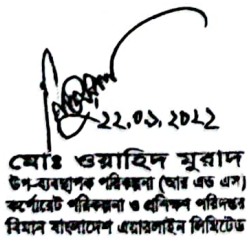 22.09.2022
মোঃ ওয়াহিদ মুরাদ
উপ-ব্যবস্থাপক পরিকল্পনা (আর এন্ড এস)
কর্পোরেট পরিকল্পনা ও প্রশিক্ষণ পরিদপ্তর
বিমান বাংলাদেশ এয়ারলাইন লিমিটেড